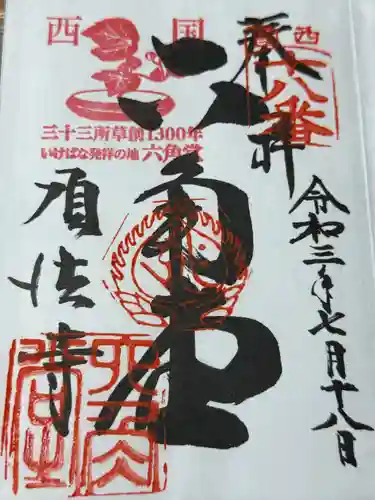 西国
三十三所草創1300年
いけばな発祥の地 六角堂
西国
十八番
奉拝
六角堂
頂法寺
令和三年七月十八日